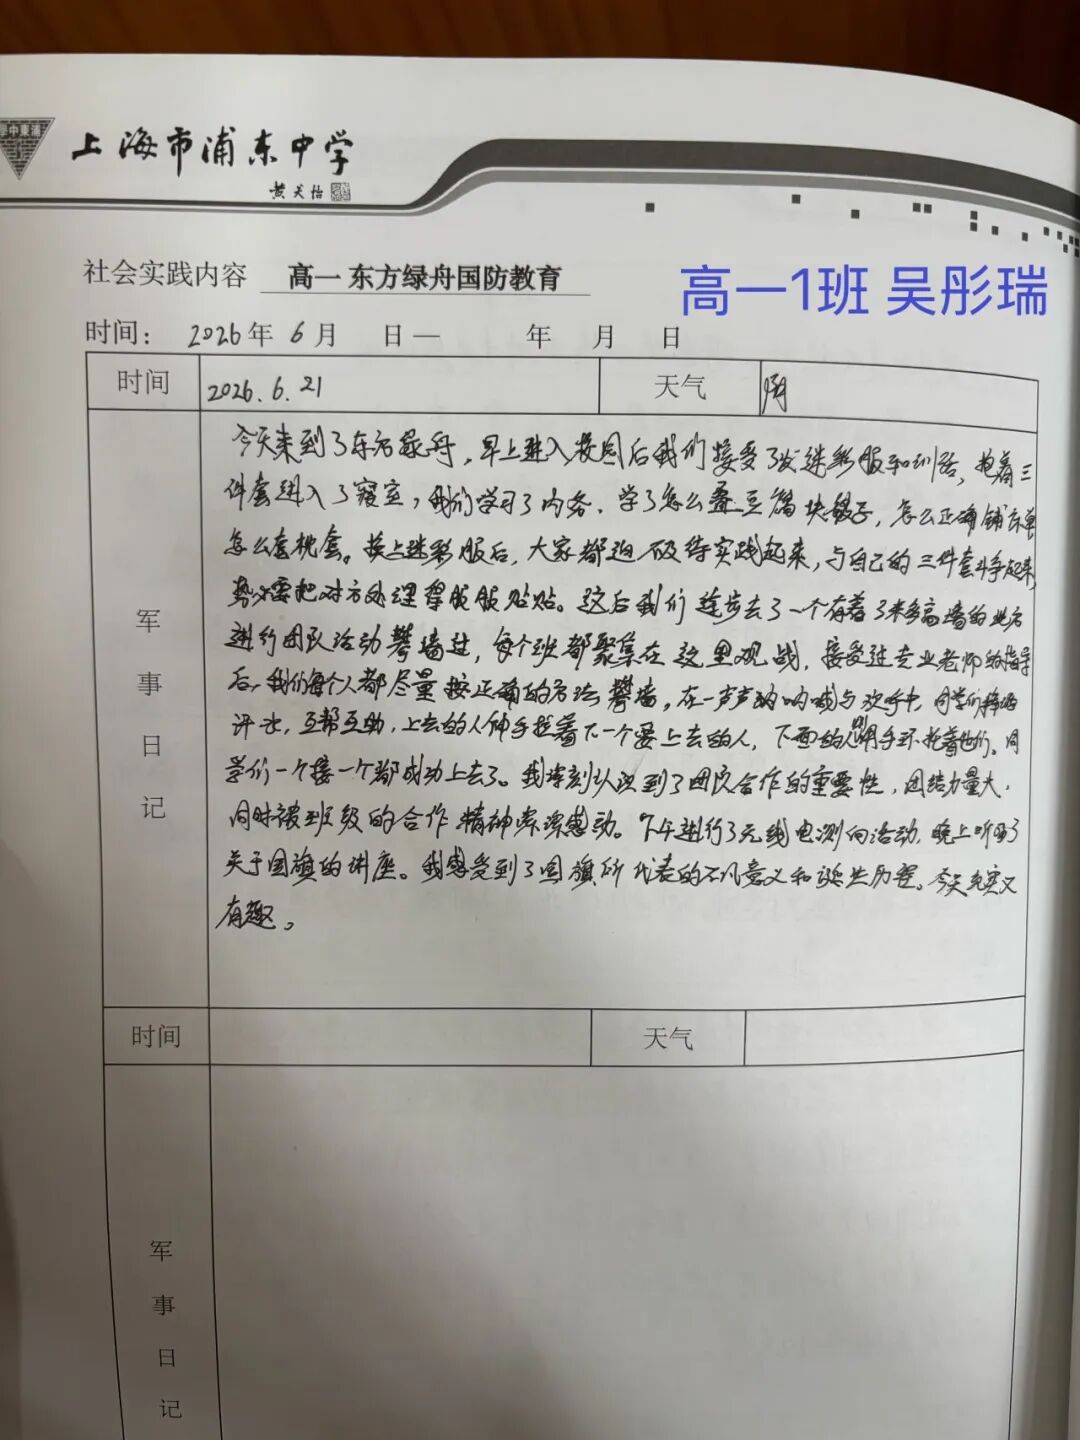 浦東中學
上海市浦东中学
黄炎培
社会实践内容 高一 东方绿舟国防教育
高一1班 吴彤瑞
时间： 2026年 6月 日— 年 月 日
时间 2026.6.21 天气 阴
今天来到了东方绿舟，早上进入校园后我们接受了发迷彩服和训话，抱着三
件套进入了寝室，我们学习了内务，学了怎么叠豆腐块被子，怎么正确铺床单
怎么套枕套。换上迷彩服后，大家都迫不及待实践起来，与自己的三件套斗争起来，
势必要把对方处理得服服贴贴。这后我们徒步去了一个有着了米多高墙的地方
进行团队活动攀墙过，每个班都聚集在这里观战，接受过专业老师的指导
后，我们每个人都尽量按正确的方法攀墙，在一声声呐喊与欢呼中，同学们挥洒
汗水，互帮互助，上去的人伸手拉着下一个要上去的人，下面的人用手环抱着他们。同
学们一个接一个都成功上去了。我深刻认识到了团队合作的重要性，团结力量大，
同时被班级的合作精神深深感动。下午进行了无线电测向活动，晚上听了
关于国旗的讲座。我感受到了国旗所代表的不凡意义和诞生历程。今天充实又
有趣。
军
事
日
记
时间 天气
军
事
日
记